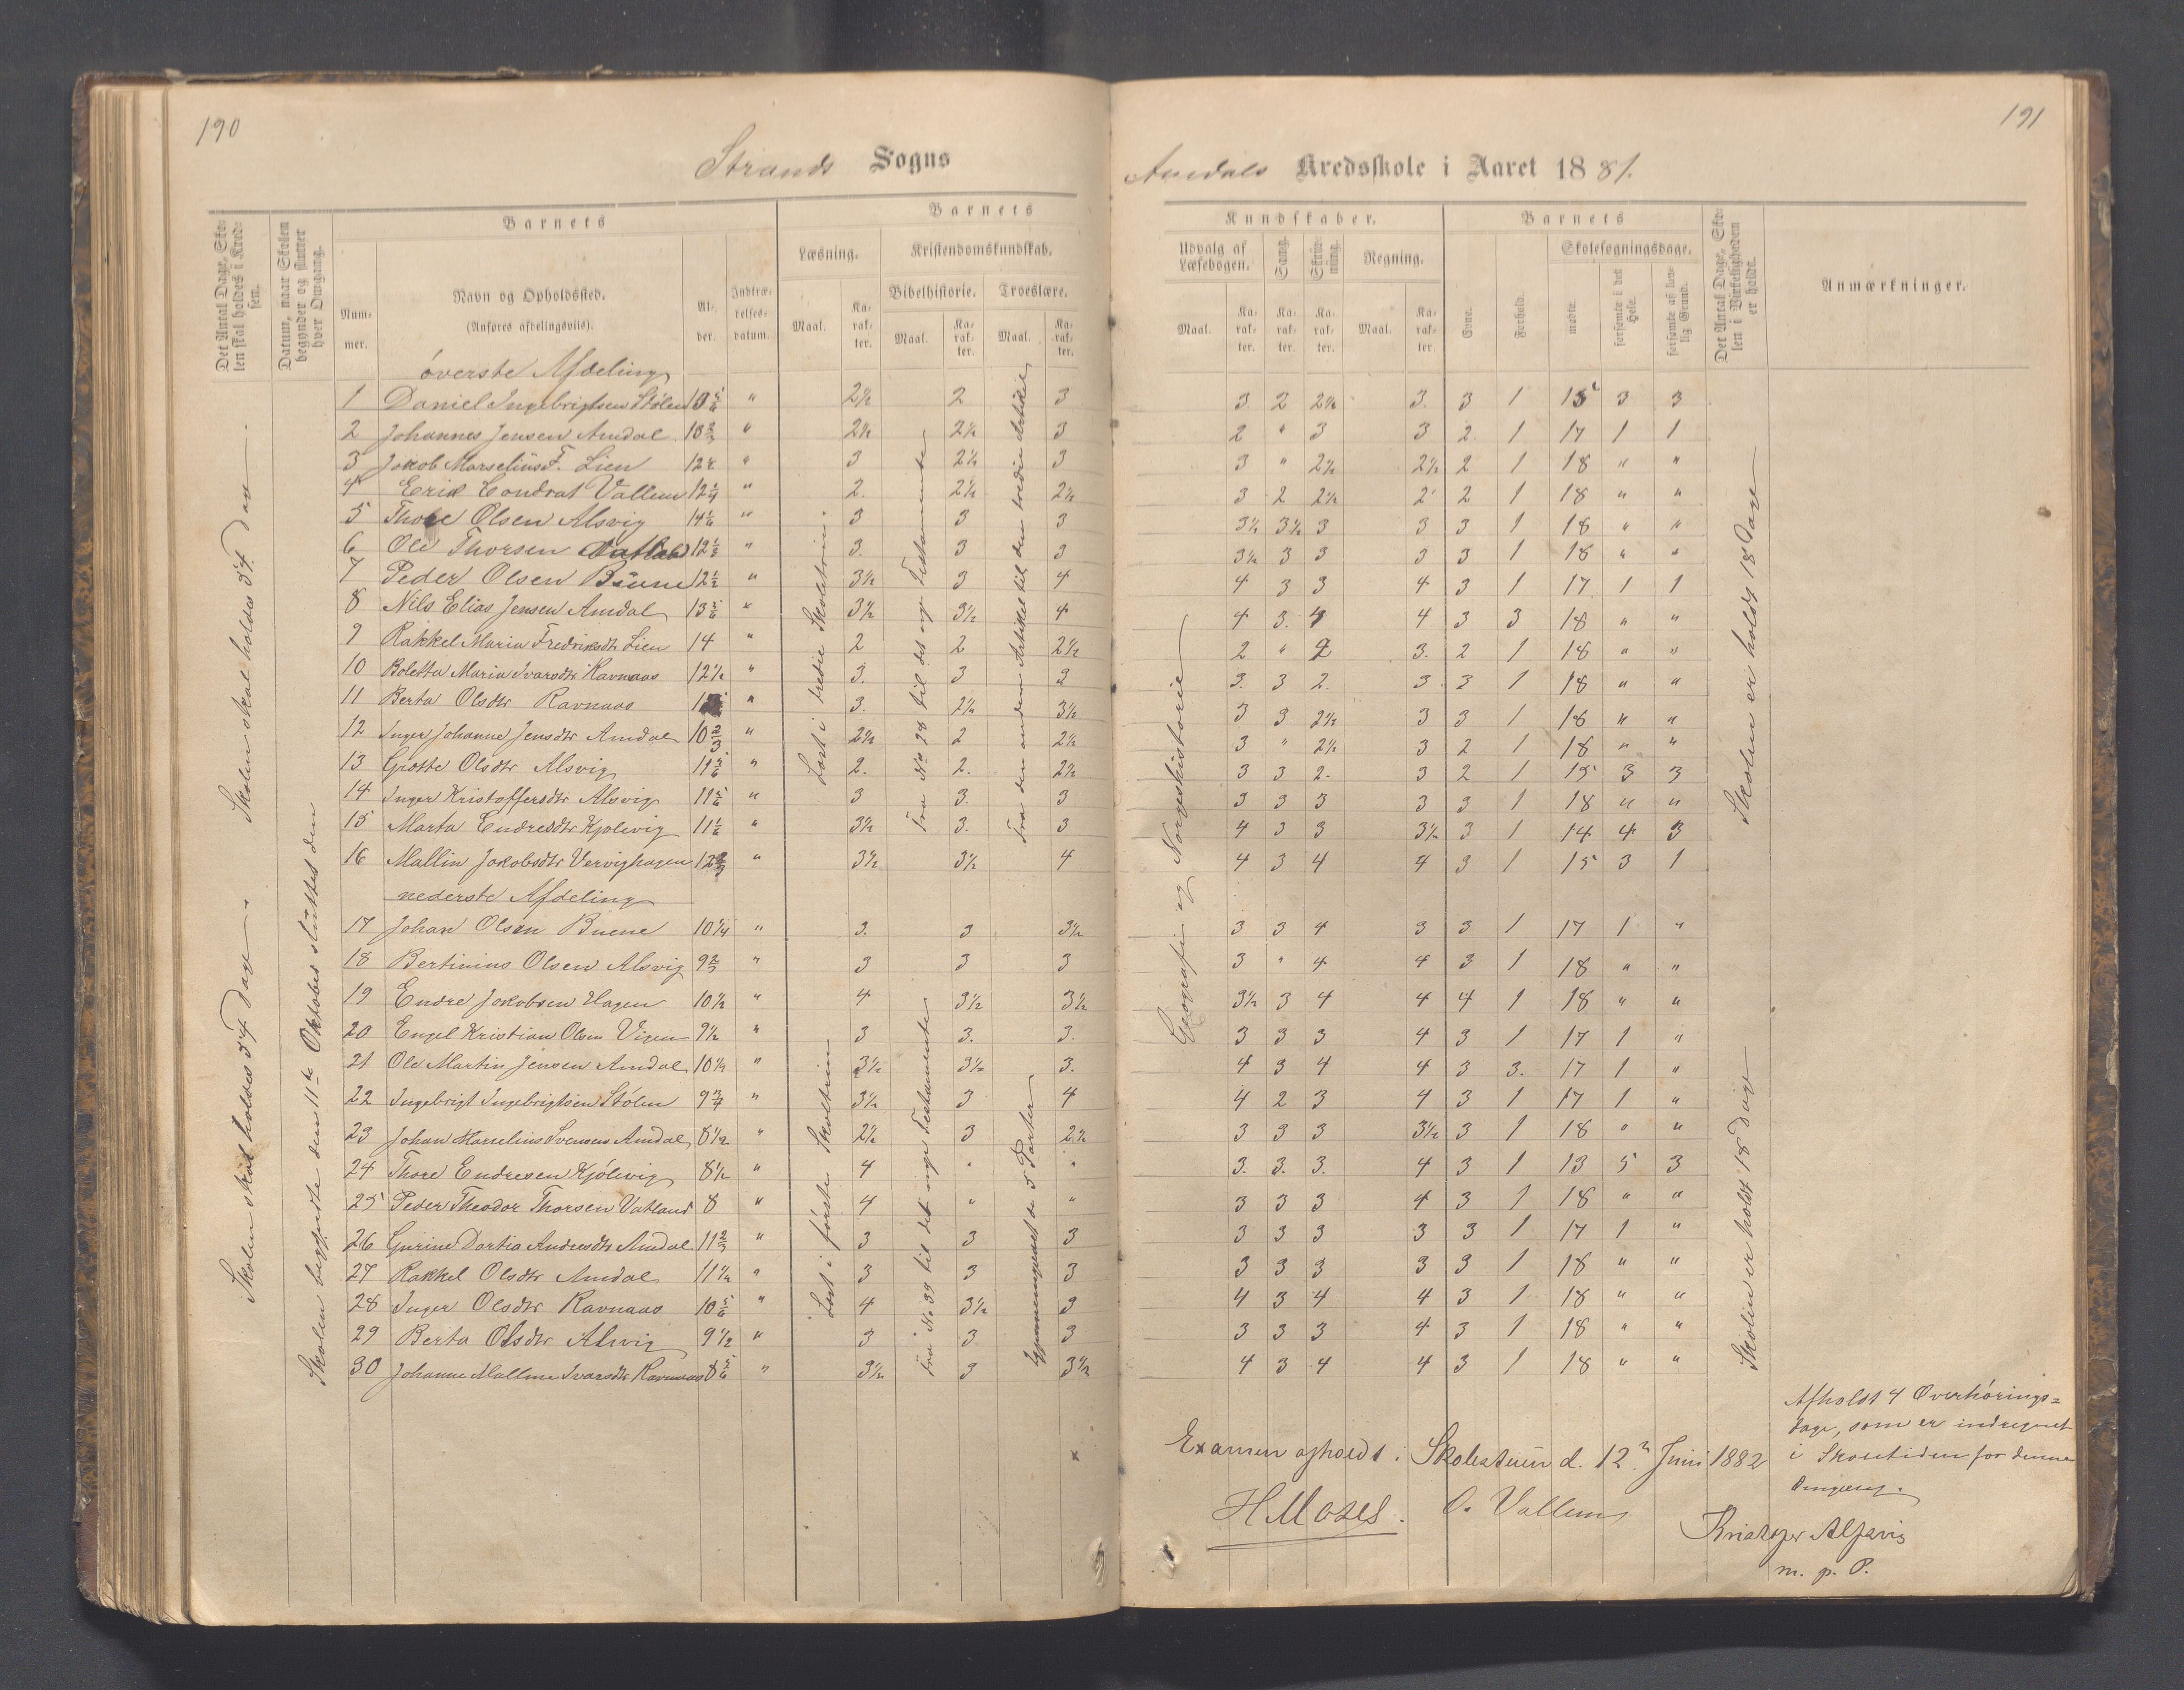 190
Strands Sogns
Det Antal Dage, Skolen skal holdes i Kredsen.
Datum, naar Skolen begynder og slutter hver Omgang.
Barnets
Nummer.
Navn og Opholdssted.
(Anføres afdelingsviis).
Alder.
Indtrædelsesdatum.
Barnets
Læsning.
Kristendomskundskab.
Bibelhistorie.
Troeslære.
Maal.
Karakter.
Maal.
Karakter.
Maal.
Karakter.
øverste Afdeling
1 Daniel Ingebrigtsen Stølen " 2½ 2 3
2 Johannes Jensen Amdal 10⅔ " 2½ 2½ 3
3 Jakob Marselius F. Lien " 3 2½ 3
4 Erik Condrat Vallem 12¼ " 2. 2½ 2½
5 Thore Olsen Alsvig 14⅙ " 3 3 3
6 Ole Thorsen Vatland 12⅓ " 3. 3 3
7 Peder Olsen Buene 12½ " 3½ 3 4
8 Nils Elias Jensen Amdal 13⅚ " 3½ 3½ 4
9 Rakkel Maria Fredriksdtr Lien 14 " 2 2 2½
10 Boletta Maria Ivarsdtr Ravnaas 12½ " 3. 3 3
11 Berta Olsdtr Ravnaas " 3. 2½ 3½
12 Inger Johanne Jensdtr Amdal 10⅔ " 2½ 2 2½
13 Grætte Olsdtr Alsvig 11⅚ " 2. 2. 2½
14 Inger Kristoffersdtr Alsvig 11⅚ " 3 3. 3
15 Marta Endresdtr Kjølevig 11⅙ " 3½ 3. 3
16 Mallin Jakobsdtr Vervighagen 12⅔ " 3½ 3½ 4
nederste Afdeling
17 Johan Olsen Buene 10¼ " 3. 3 3½
18 Bertinius Olsen Alsvig 9⅔ " 3 3 3
19 Endre Jakobsen Hagen 10½ " 4 3½ 3½
20 Engel Kristian Olsen Vigen 9½ " 3 3. 3.
21 Ole Martin Jensen Amdal 10¼ " 3½ 3½ 3.
22 Ingebrigt Ingebrigtsen Stølen 9¾ " 3½ 3 4
23 Johan Marselius Svensen Amdal 8½ " 2½ 3 2½
24 Thore Endresen Kjølevig 8½ " 4 " "
25 Peder Theodor Thorsen Vatland 8 " 4 " "
26 Gurine Dortia Andresdtr Amdal 11⅔ " 3 3 3
27 Rakkel Olsdtr Amdal 11½ " 3 3 3
28 Inger Olsdtr Ravnaas 10⅚ " 4 3½ 3
29 Berta Olsdtr Alsvig 9½ " 3 3 3
30 Johanne Malline Ivarsdtr Ravnaas 8⅚ " 3½ 3 3½
Skolen skal holdes 54 Dage.
Skolen skal holdes 54 Dage.
Skolen begyndte den 11te Oktober sluttet den
Læst i tredie Skoletrin.
Fra No 98 til det nye Testamente
Fra den anden Artikel til den tredie Artikel
Læst i første Skoletrin
Fra No 39 til det nye Testamente
Gjennemgaaet de 5 Parter
191
Amdals Kredsskole i Aaret 1881.
Kundskaber.
Udvalg af Læsebogen.
Sang.
Skrivning.
Regning.
Maal.
Karakter.
Karakter.
Karakter.
Maal.
Karakter.
Barnets
Evne.
Forhold.
Skolesøgningsdage.
mødte
forsømte i det Hele.
forsømte af lovlig Grund.
Det Antal Dage, Skolen i Virkeligheden er holdt.
Anmærkninger.
3. 2 2½ 3. 3 1 15 3 3
2 " 3 3 2. 1 17 1 1
3 " 2½ 2½ 2 1 18 " "
3 2 2½ 2 2 1 18 " "
3½ 3½ 3 3 3 1 18 " "
3½ 3 3 3 3 1 18 " "
4 3 3 4 3 1 17 1 1
4 3. 4 4 3 3 18 " "
2 " 2 3. 2 1 18 " "
3. 3 2. 3 3 1 18 " "
3 3 2½ 3 3 1 18 " "
3 " 2½ 3 2 1 18 " "
3 3 2. 3 2 1 15 3 3
3 3 3 3 3 1 18 " "
4 3 3 3½ 3 1 14 4 3
4 3 4 4 3 1 15 3 1
3 3 4 3 3 1 17 1 "
3 " 4 4 3 1 18 " "
3½ 3 4 4 4 1 18 " "
3 3 3 4 3 1 17 1 "
4 3 4 4 3 3. 17 1 "
4 2 3 4 3 1 17 1 "
3 3 3 3½ 3 1 18 " "
3. 3. 3. 4 3 1 13 5 3
3 3 3 4 3 1 18 " "
3 3 3 3 3 1 17 1 "
3 3 3 3 3 1 18 " "
4 3 4 4 3 1 18 " "
3 3 3 4 3 1 18 " "
4 3 4 4 3 1 18 " "
Geografi og Norgeshistorie
Skolen er holdt 18 Dage
Skolen er holdt 18 Dage
Afholdt 4 Overhørings=
dage, som er indregnet
i Skoletiden for denne
Omgang.
Examen afholdt i Skolestuen d. 12te Juni 1882
H Moses. O. Vallem
Kristofer Alsvig
m. p. P.